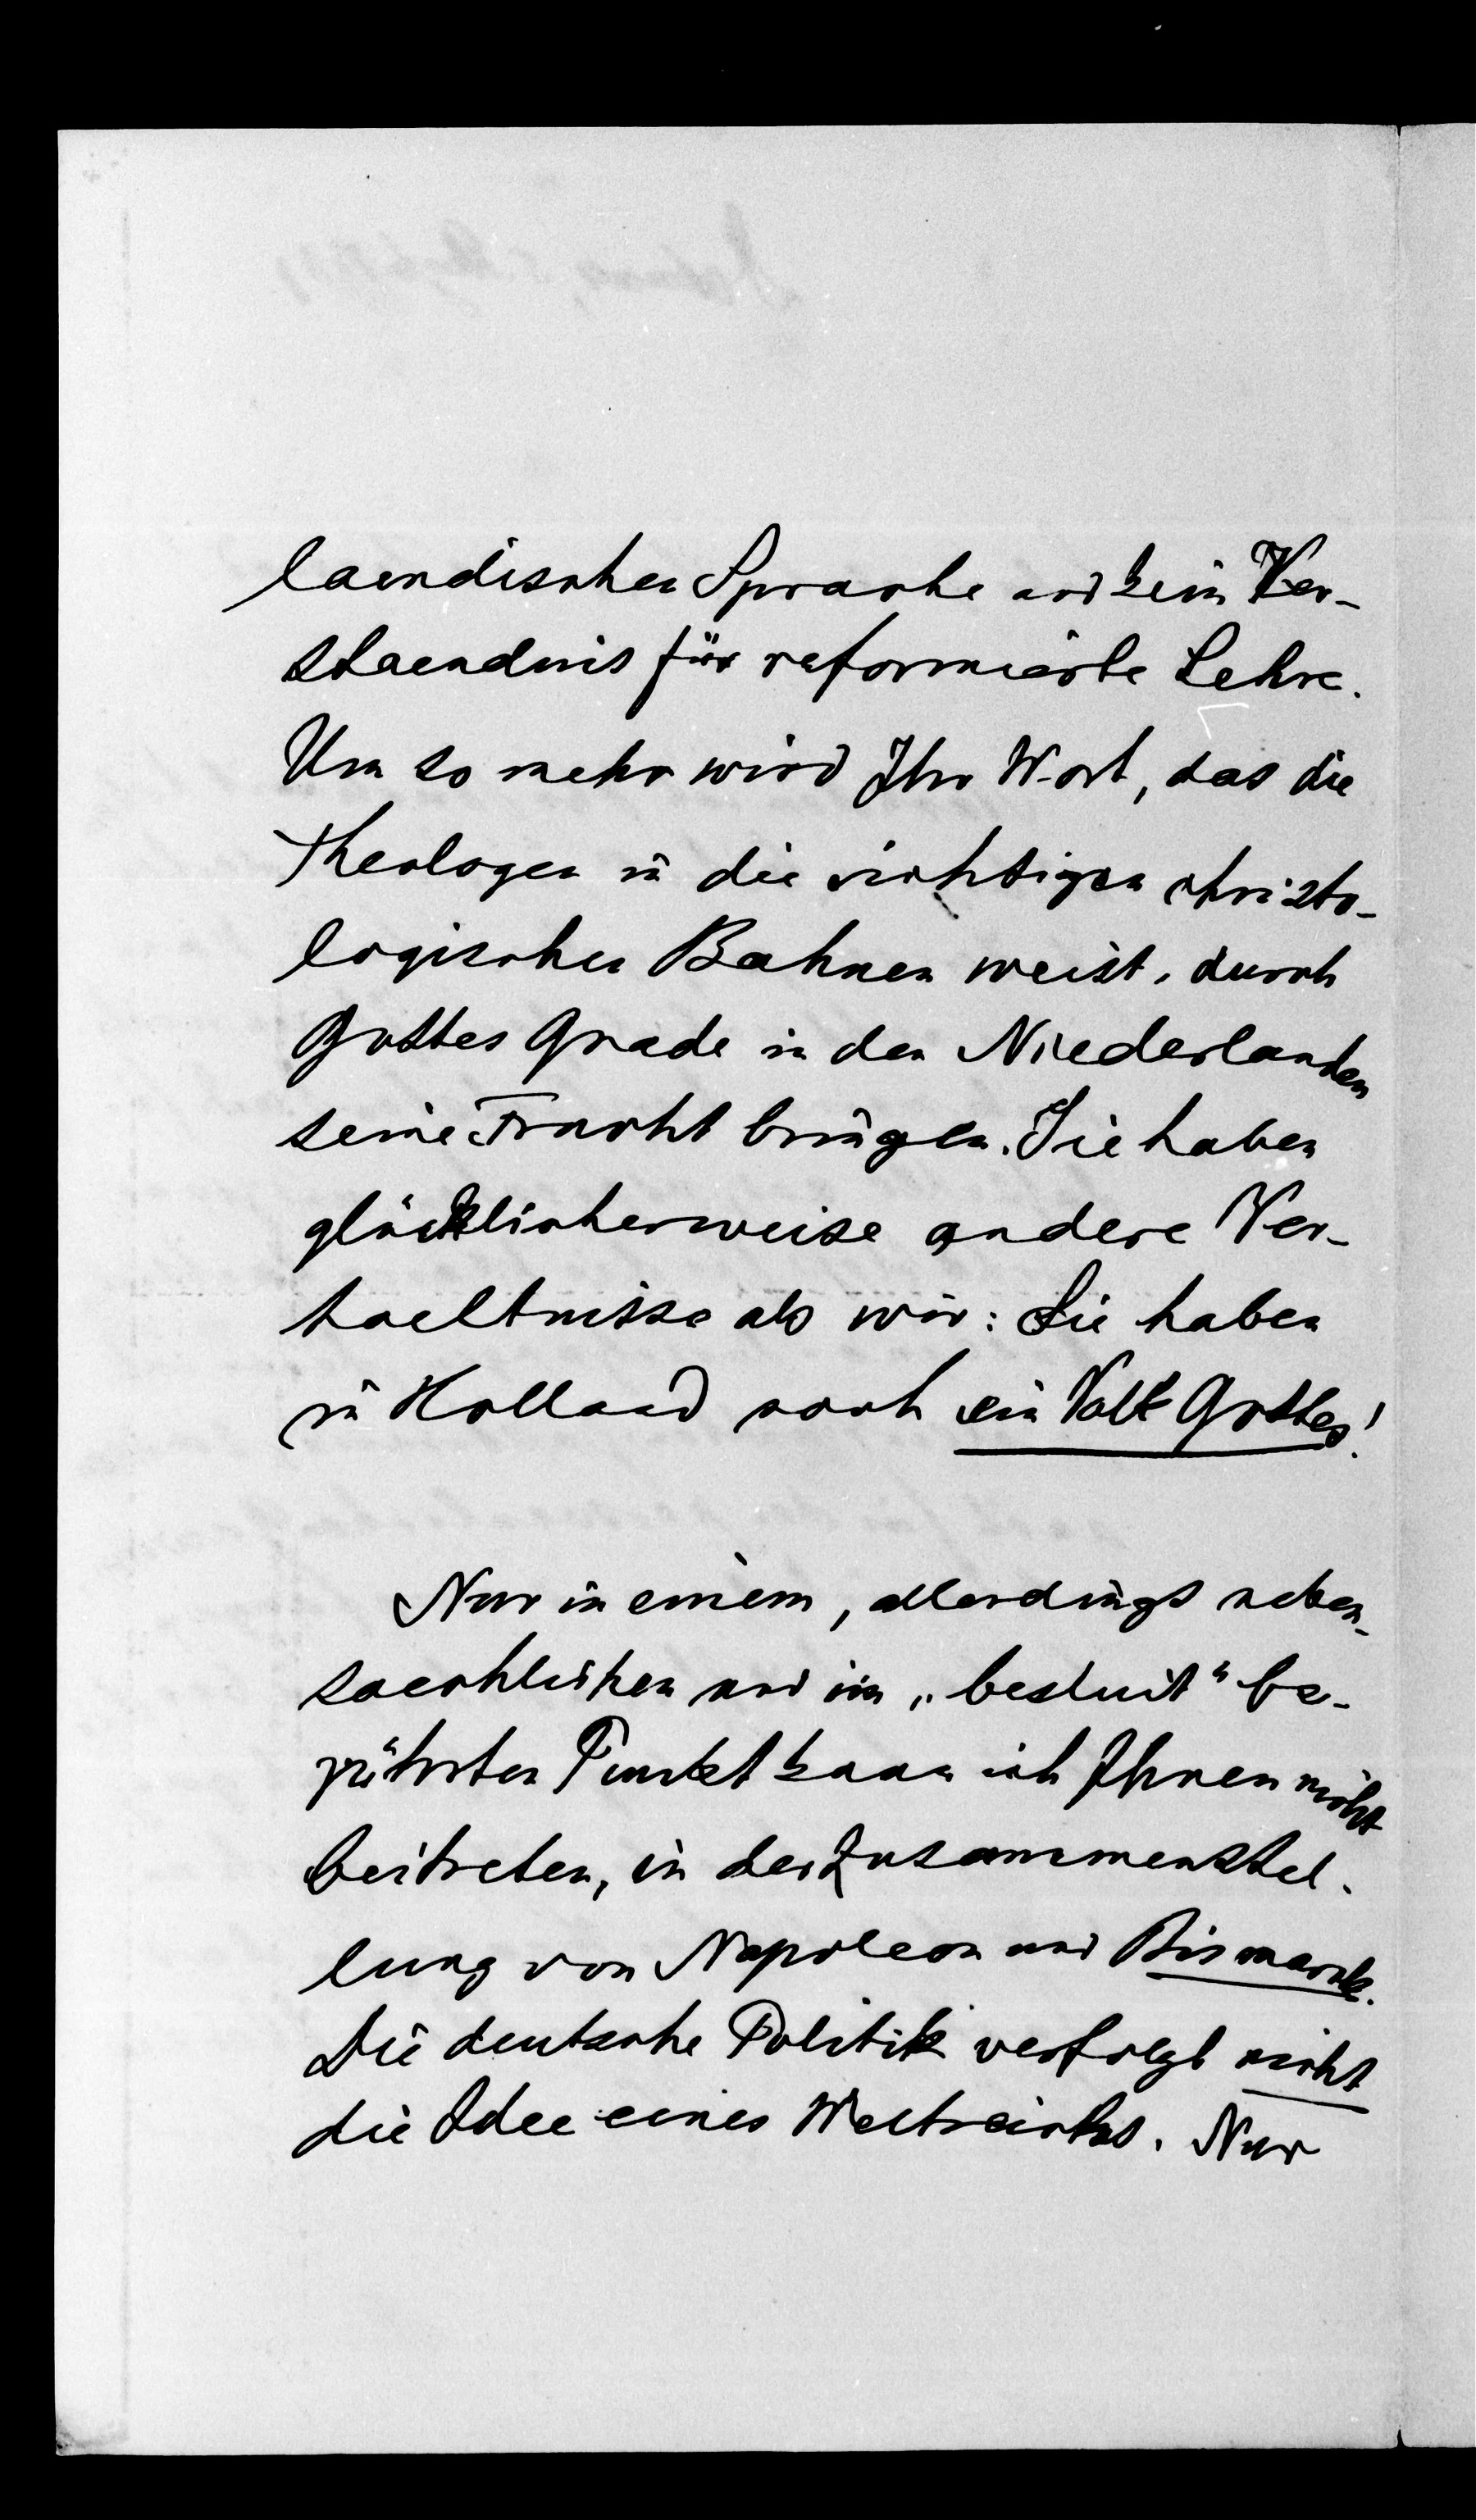 laendischer Sprache und kein Ver-
staendnis für reformierte Lehre.
Um so mehr wird Ihr Wort, das die
Theologen in die richtigen christo-
logischen Bahnen weist, durch
Gottes Gnade in den Niederlanden
seine Frucht bringen. Sie haben
glücklicherweise andere Ver-
haeltnisse als wir: Sie haben
in Holland noch ein Volk Gottes!
Nur in einem, allerdings neben-
saechlichen und im „besluit“ be-
rührten Punkt kann ich Ihnen nicht
beitreten, in der Zusammenstel-
lung von Napoleon und Bismarck.
Die deutsche Politik verfolgt nicht
die Idee eines Weltreichs. Nur